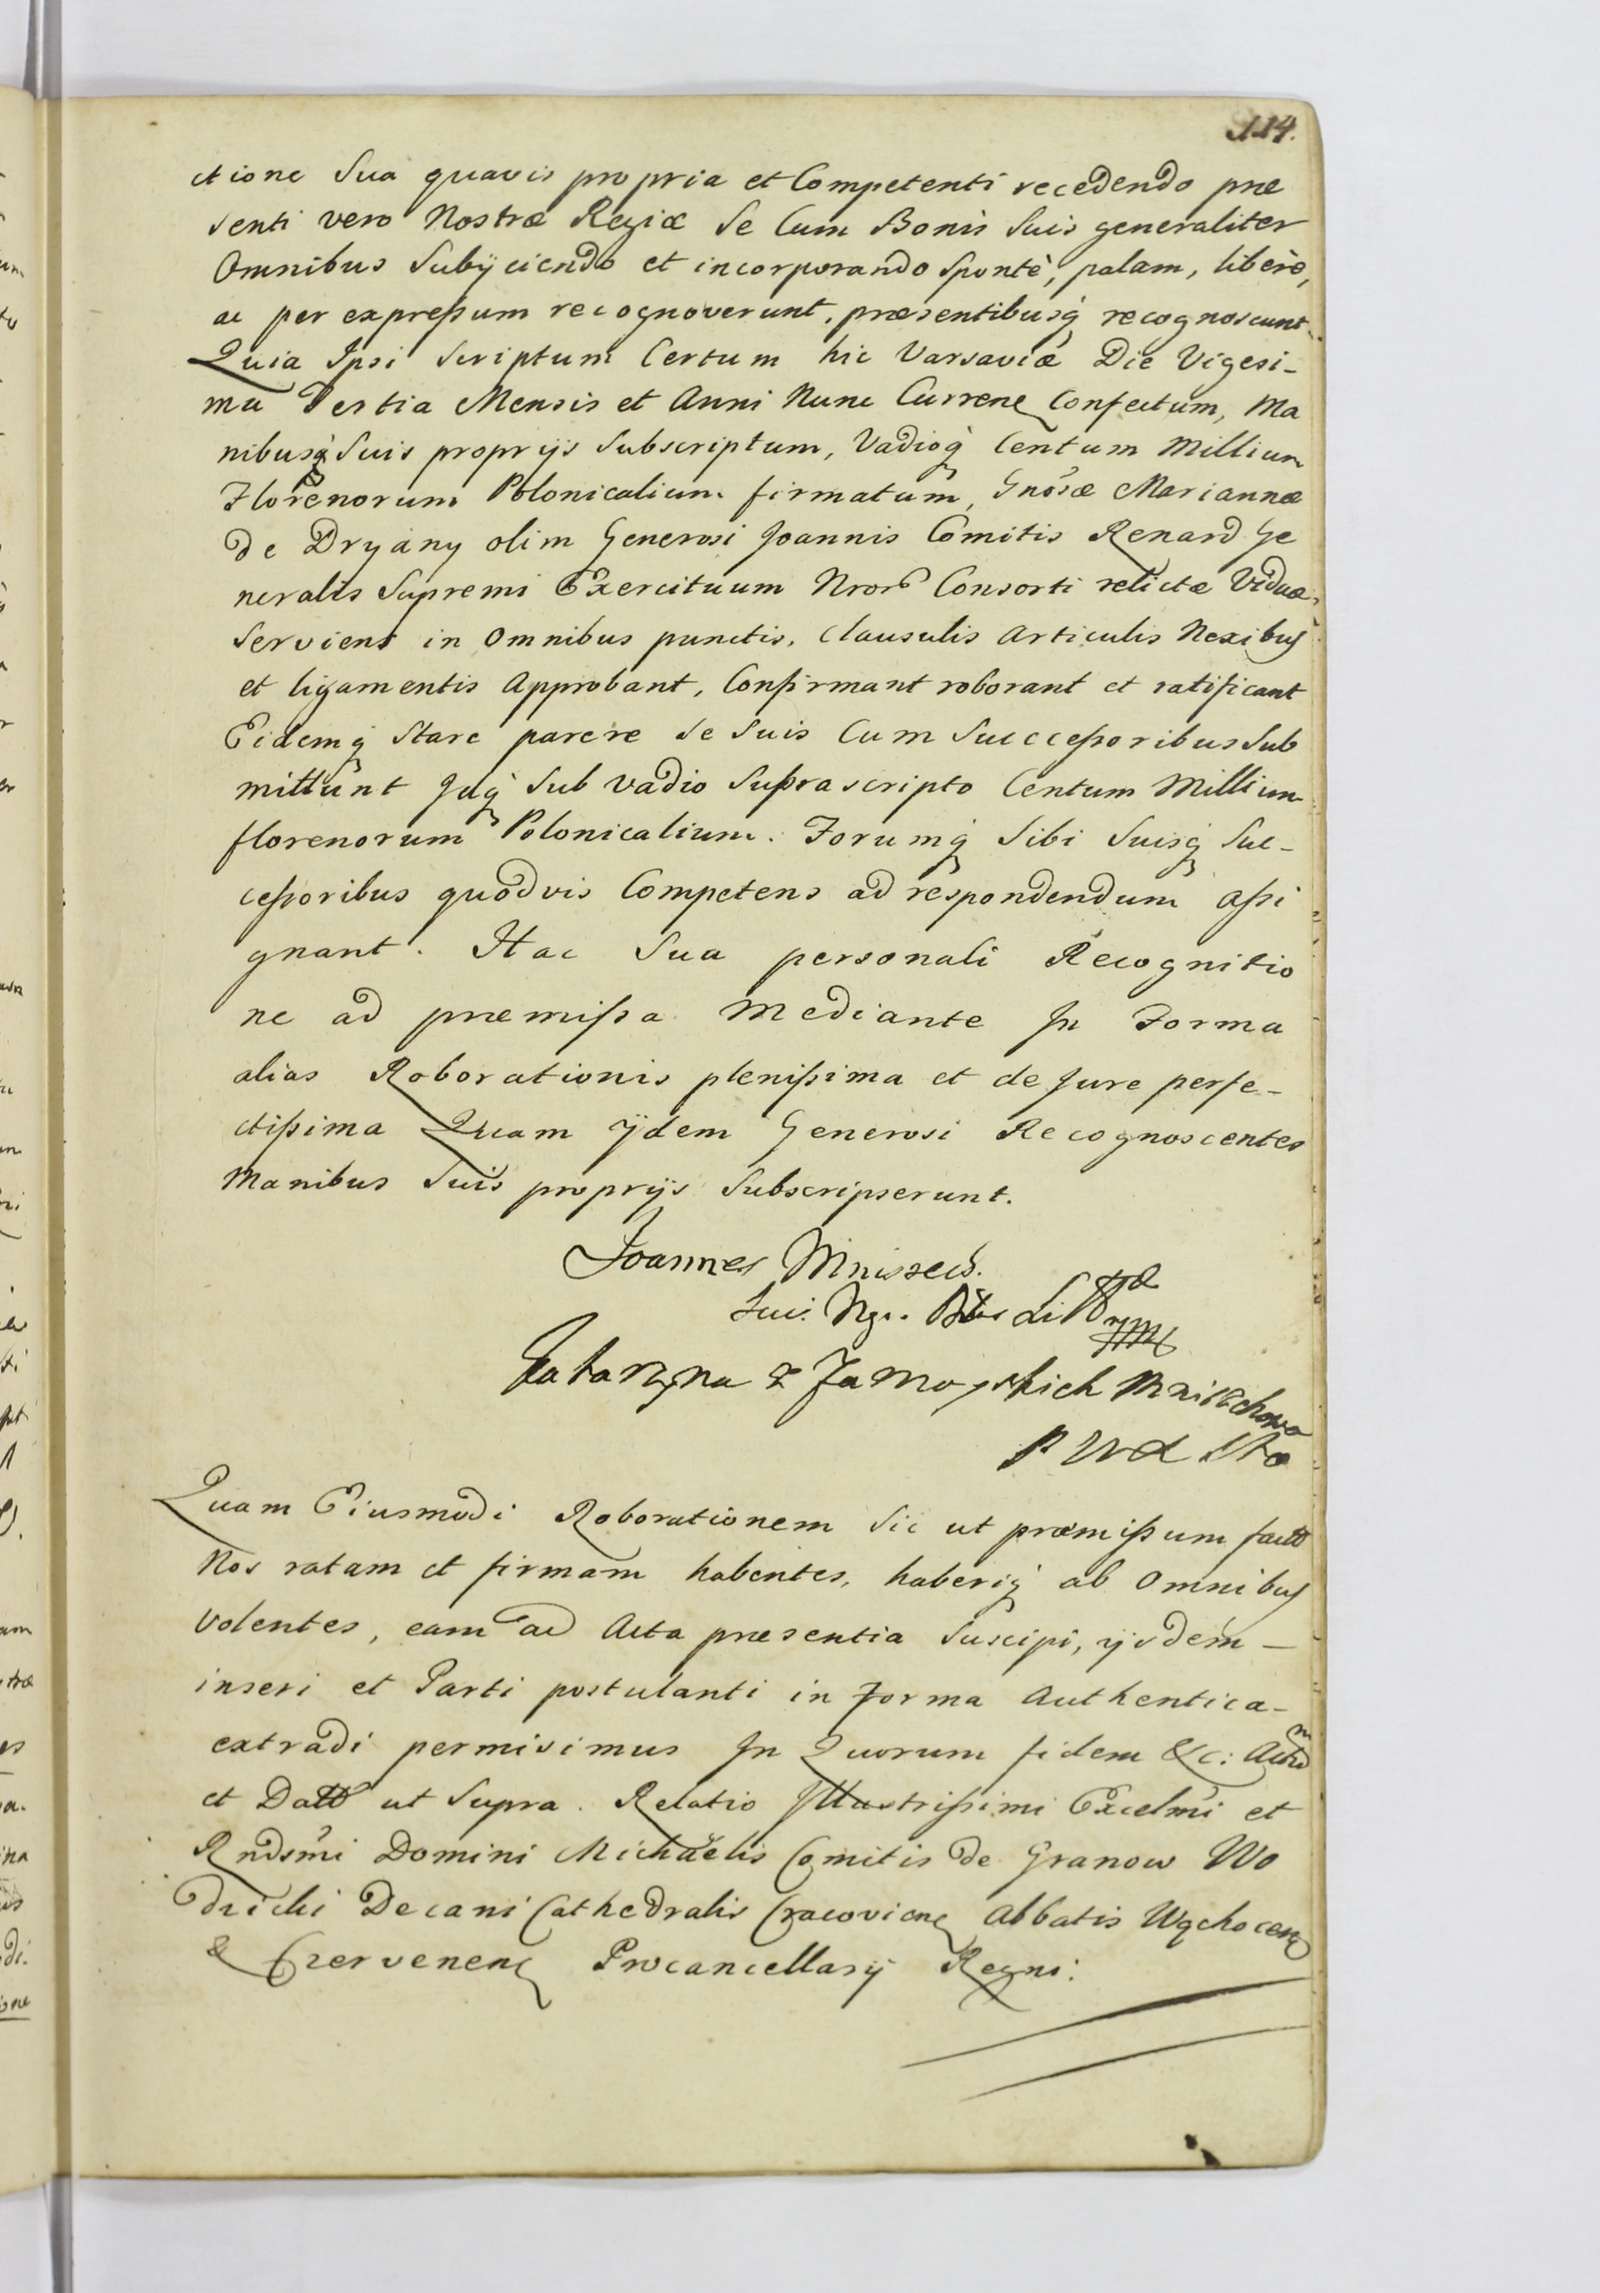 114.
ctione Sua quavis propria et Competenti recedendo præ
senti vero Nostræ Regiæ Se Cum Bonis Suis generaliter
Omnibus Subÿciendo et incorporando Spontè, palam, liberè,
ac per expressum recognoverunt, præsentibusq́ recognoscunt
Quia Ipsi Scriptum Certum hic Varsaviæ Die Vigesi-
ma Tertia Mensis et Anni Nunc Curren Confectum, Ma
nibusq́ Suis proprÿs Subscriptum, Vadioq́ Centum Millium
Florenorum Polonicalium firmatum, Gnosæ Mariannæ
de Dryany olim Generosi Joannis Comitis Renard Ge
neralis Supremi Exercituum Nror Consorti relictæ Viduæ,
Serviens in Omnibus punctis, Clausulis Articulis Nexibus
et ligamentis Approbant, Confirmant roborant et ratificant
Eidemq́ Stare parere Se Suis Cum Successoribus Sub
mittunt Idq́ Sub Vadio Suprascripto Centum Millium
florenorum Polonicalium. Forumq́ Sibi Suisq́ Suc-
cessoribus quodvis Competens ad respondendum assi
gnant. Hac Sua personali Recognitio
ne ad præmissa Mediante In Forma
alias Roborationis plenissima et de Jure perfe-
ctissima Quam ÿdem Generosi Recognoscentes
Manibus Suis proprÿs Subscripserunt.
Joannes Mniszech.
Katarzyna z Zamoyskich Mniszchowa
Quam Eiusmodi Roborationem Sic ut præmissum fact
Nos ratam et firmam habentes, haberiq́ ab Omnibus
Volentes, eam ad Acta præsentia Suscipi, ÿsdem -
inseri et Parti postulanti in Forma Authentica -
extradi permisimus In Quorum fidem &c: Actum
et Datt ut Supra. Relatio Illustrissimi Excelmi et
Rndsmi Domini Michaëlis Comitis de Granow Wo
dzicki Decani Cathedralis Cracovien Abbatis Wąchocen
& Czervenen Procancellarÿ Regni: